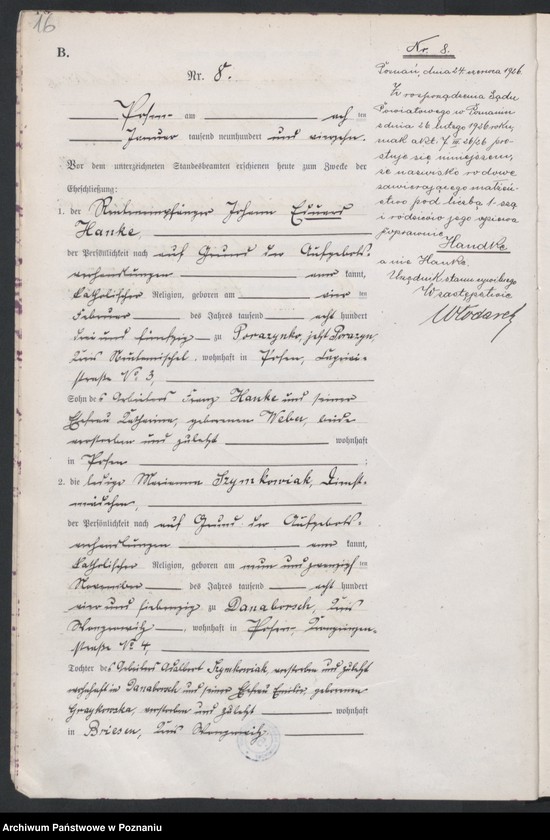 16
B.
Nr. 8.
Posen am acht ten
Januar tausend neunhundert und vierzehn.
Vor dem unterzeichneten Standesbeamten erschienen heute zum Zwecke der
Eheschließung:
1. der Rentenempfänger Johann Eduard
Hanke,
der Persönlichkeit nach auf Grund der Aufgebots-
verhandlungen aner kannt,
katholischer Religion, geboren am vier ten
Februar des Jahres tausend acht hundert
drei und fünfzig zu Porazynko, jetzt Porazyn,
Kreis Neutomischel, wohnhaft in Posen, Caprivi-
straße No 3,
Sohn des Arbeiters Franz Hanke und seiner
Ehefrau Katharina, geborenen Weber, beide
verstorben und zuletzt wohnhaft
in Posen ;
2. die ledige Marianna Szymkowiak, Dienst-
mädchen,
der Persönlichkeit nach auf Grund der Aufgebots-
verhandlungen aner kannt,
katholischer Religion, geboren am neun und zwanzig ten
November des Jahres tausend acht hundert
vier und siebenzig zu Danaborsch, Kreis
Wongrowitz, wohnhaft in Posen,
straße No 4,
Tochter des Arbeiters Adalbert Szymkowiak, verstorben und zuletzt
wohnhaft in Danaborsch und seiner Ehefrau Emilie, geborenen
verstorben und zuletzt wohnhaft
in Briesen, Kreis Wongrowitz
Nr. 8.
Poznań, dnia 24 czerwca 1926
Z rozporządzenia Sądu
Powiatowego w Poznaniu
z dnia 26 lutego 1926 roku,
znak akt. 7. III 26/26 pro-
stuje się niniejszem,
że nazwisko rodowe
zawierającego małżeń-
stwo pod liczbą 1. zaś
i rodziców jego opiewa
poprawnie
Handke
a nie Hanke.
Urzędnik stanu cywilnego
W zastępstwie
Włodarek
Archiwum Państwowe w Poznaniu